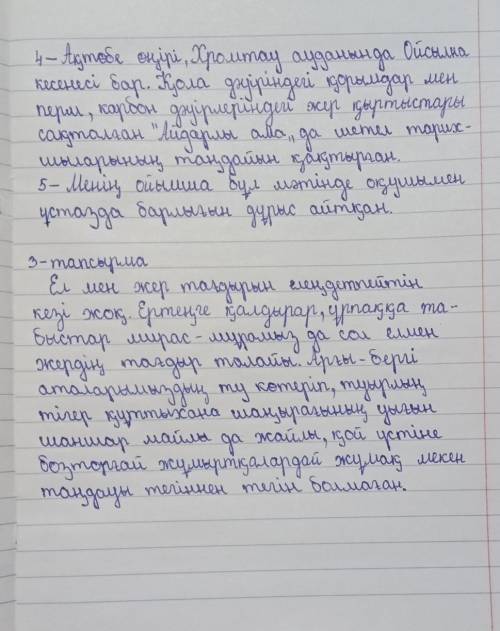 4 – Ақтөбе өңірі, Хромтау ауданында Ойсылқа
кесенесі бар. Қола дәуіріндегі қорымдар мен
перм, карбон дәуірлеріндегі жер қыртыстары
сақталған "Айдарлы аша„ да шетел тарих-
шыларының таңдайын қақтырған.
5 – Менің ойымша бұл мәтінде оқушымен
ұстазда барлығын дұрыс айтқан.
3-тапсырма
Ел мен жер тағдырын елеңдетпейтін
кезі жоқ. Ертеңге қалдырар, ұрпаққа та-
быстар мирас-мұрамыз да сол елмен
жердің тағдыр талайы. Арғы-бергі
аталарымыздың ту көтеріп, туырлық
тігер құттыхана шаңырағының уығын
шаншар майлы да жайлы, қой үстіне
бозторғай жұмыртқалардай жұмақ мекен
таңдауы тегіннен тегін болмаған.